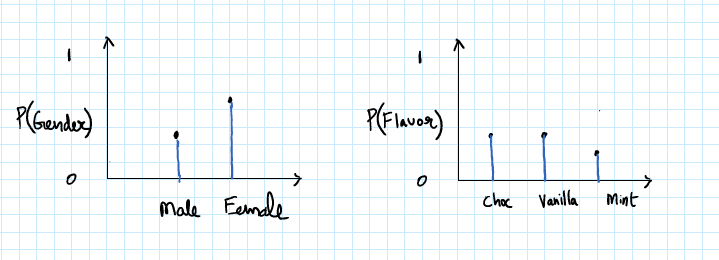 1
P(Gender)
0
Male Female
1
P(Flavor)
0
Choc Vanilla Mint